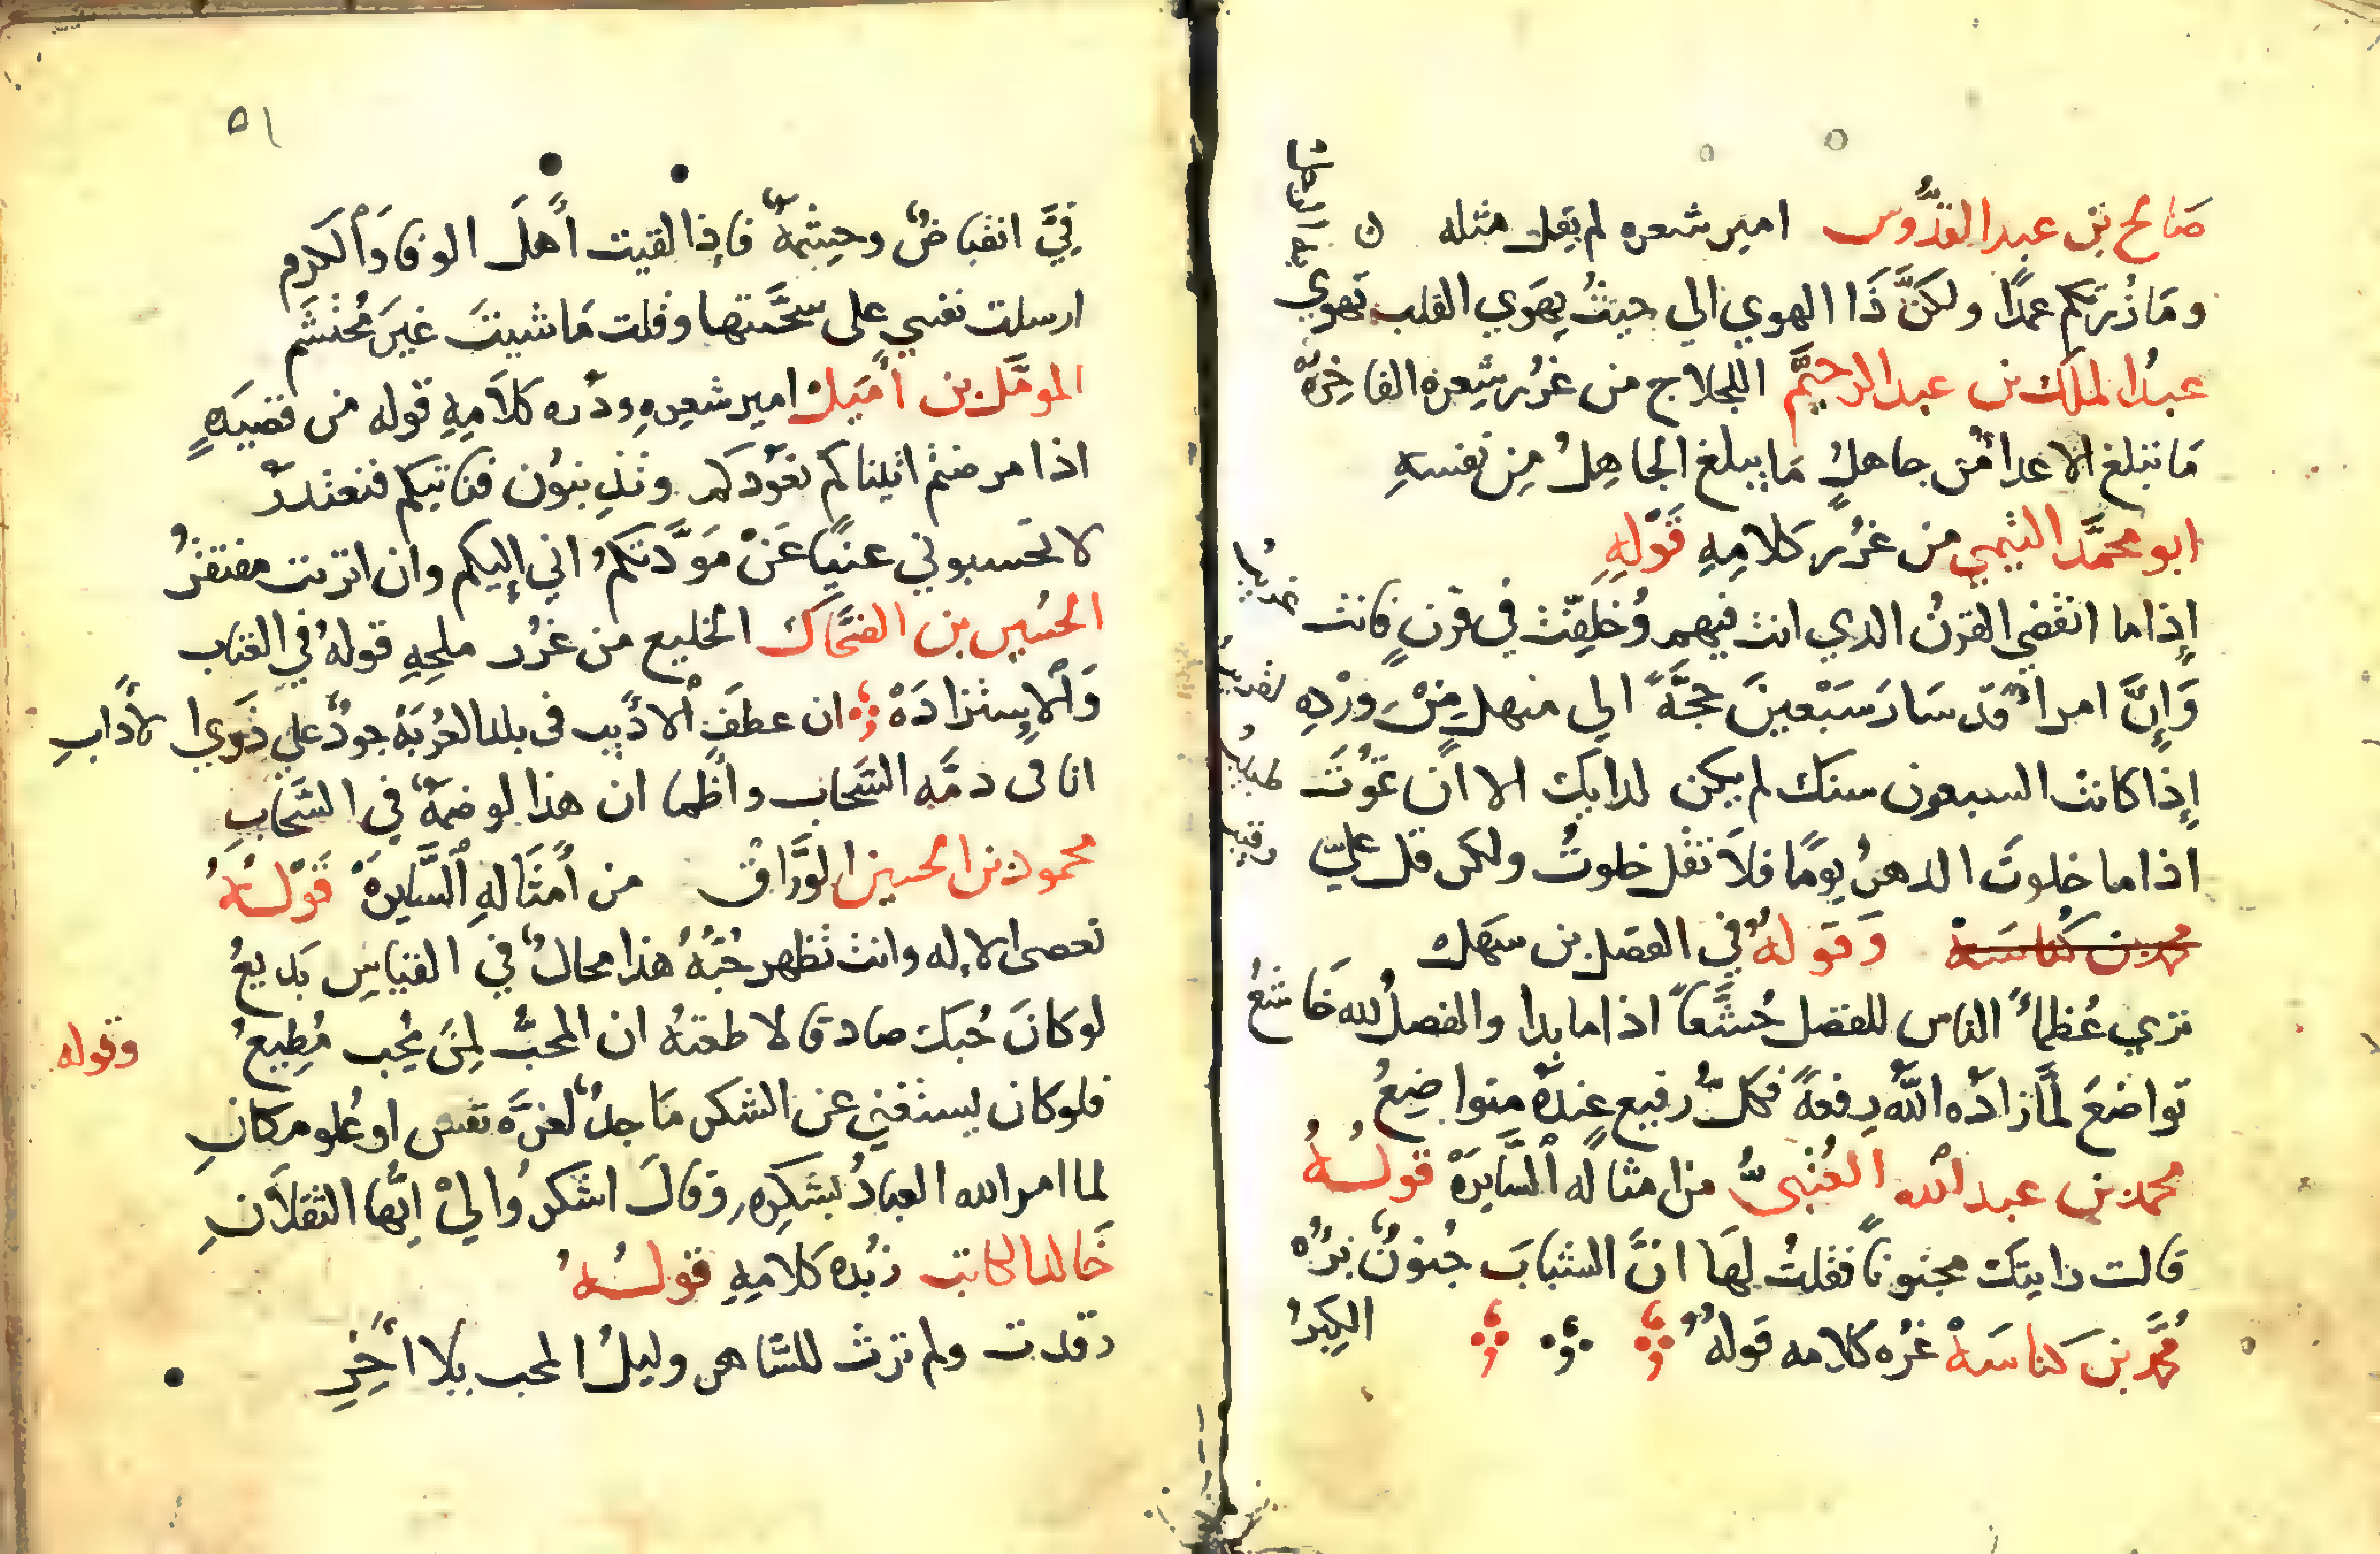 صَالح بن عبد القدُّوس امير شعره لم يقل مثله
ومَا زُرتكم عمدًا ولكنَّ ذَا الهوي الي حيثُ يهوَي القلب تهوي به الرجل
عبدُ الملك بن عبد الرحيمَّ اللجلاج من غرُر شِعره الفاخِرَهْ
مَا تبلغ الاعدا من جاهلٍ مَا يبلغ الجاهِلُ مِن نفسهِ
ابو محمَّد التيمي من غرُر كلامِهِ قَوْلِهِ
إذا ما انقضي القرنُ الدي انت فيهم وُخلِفّت في قرنٍ فانت غريبُ
وَإنَّ امراً قد سَارَ سَبْعينَ حجَّةً الي منهلٍ مِنْ وِرْدِهِ لقريبُ
إذا كانت السبعون سنك لم يكن لدايك الا ان تمَوُتَ طبيبُ
اذا ما خلوتَ الدهرُ يومًا فلاَ تقل خلوتُ ولكن قل عليَّ رقيبُ
محمد بن كناسَهْ وَقولهُ في الفضل بن سهل
تري عُظماءً الناس للفضل خُشَّعاً اذا ما بدا والفضلُ لله خَاشعُ
تواضعَ لمَّا زادَه اللَّه رِفعةً فكلُّ رفيع عِندهُ متواضِعُ
محمد بن عبد الله العُتبيُّ من امثاله السَّايرَهْ قولهُ
قالت رايتك مجنوناً فقلتُ لهَا انَّ الشبابَ جُنونٌ برُهُ الكِبَرُ
مُحمَّد بن كناسَهْ غرُه كلامه قولهُ
٥١
فِيَّ انقباضٌ وحِشمةٌ فإذا لقيت أهلَ الوفا وَالكرم
ارسلت نفسي علي سَجَّيتها وقلت مَا شيتَ غيرَ مُحتشَم
المومَّل بن أميل امير شعِرهِ ودُره كلاَمِهِ قوله من قصيدَهٍ
اذا مرضتم اتيناكم نعوُدكم وتذِنبوُن فناتيكم فنعتدرُ
لا تحَسبوني غنيًا عَنْ مَوَدَّتكمُ اني إليكم وان اثريت مفتقرُ
الحسُين بن الضحَّاك الخليع من غرُر ملحِهِ قولهُ في العتاب
وَالإستزادَهْ ان عطفَ الادَيب في بلد الغُربَهْ جودٌ علي ذَوي الادَابِ
انا في ذمَّه السَّحاب واظما ان هذا لوصمةٌ في السَّحابِ
محمود بن الحسين الوَرَّاق من أمثَالهِ السَّايرهْ قوْلهُ
تعصى الاله وانت تظهر حُبَّهُ هذا محالٌ في القياسِ بَديعُ
لو كانَ حُبك صادقا لاطعتهُ ان المحبَّ لِمنَ يُحِب مُطِيعُ وقوله
فلو كان يستغني عن الشكر مَاجدٌ لعزَّه نفس او عُلو مكانِ
لما امر الله العبادُ بشكِره وقالَ اشكروُا ليْ ايَّها الثقلاَنِ
خَالد الكاتب زبُده كلامِهِ قولهُ
رقدت ولم ترث للسَّاهر وليلُ المحب بلا أخِرِ